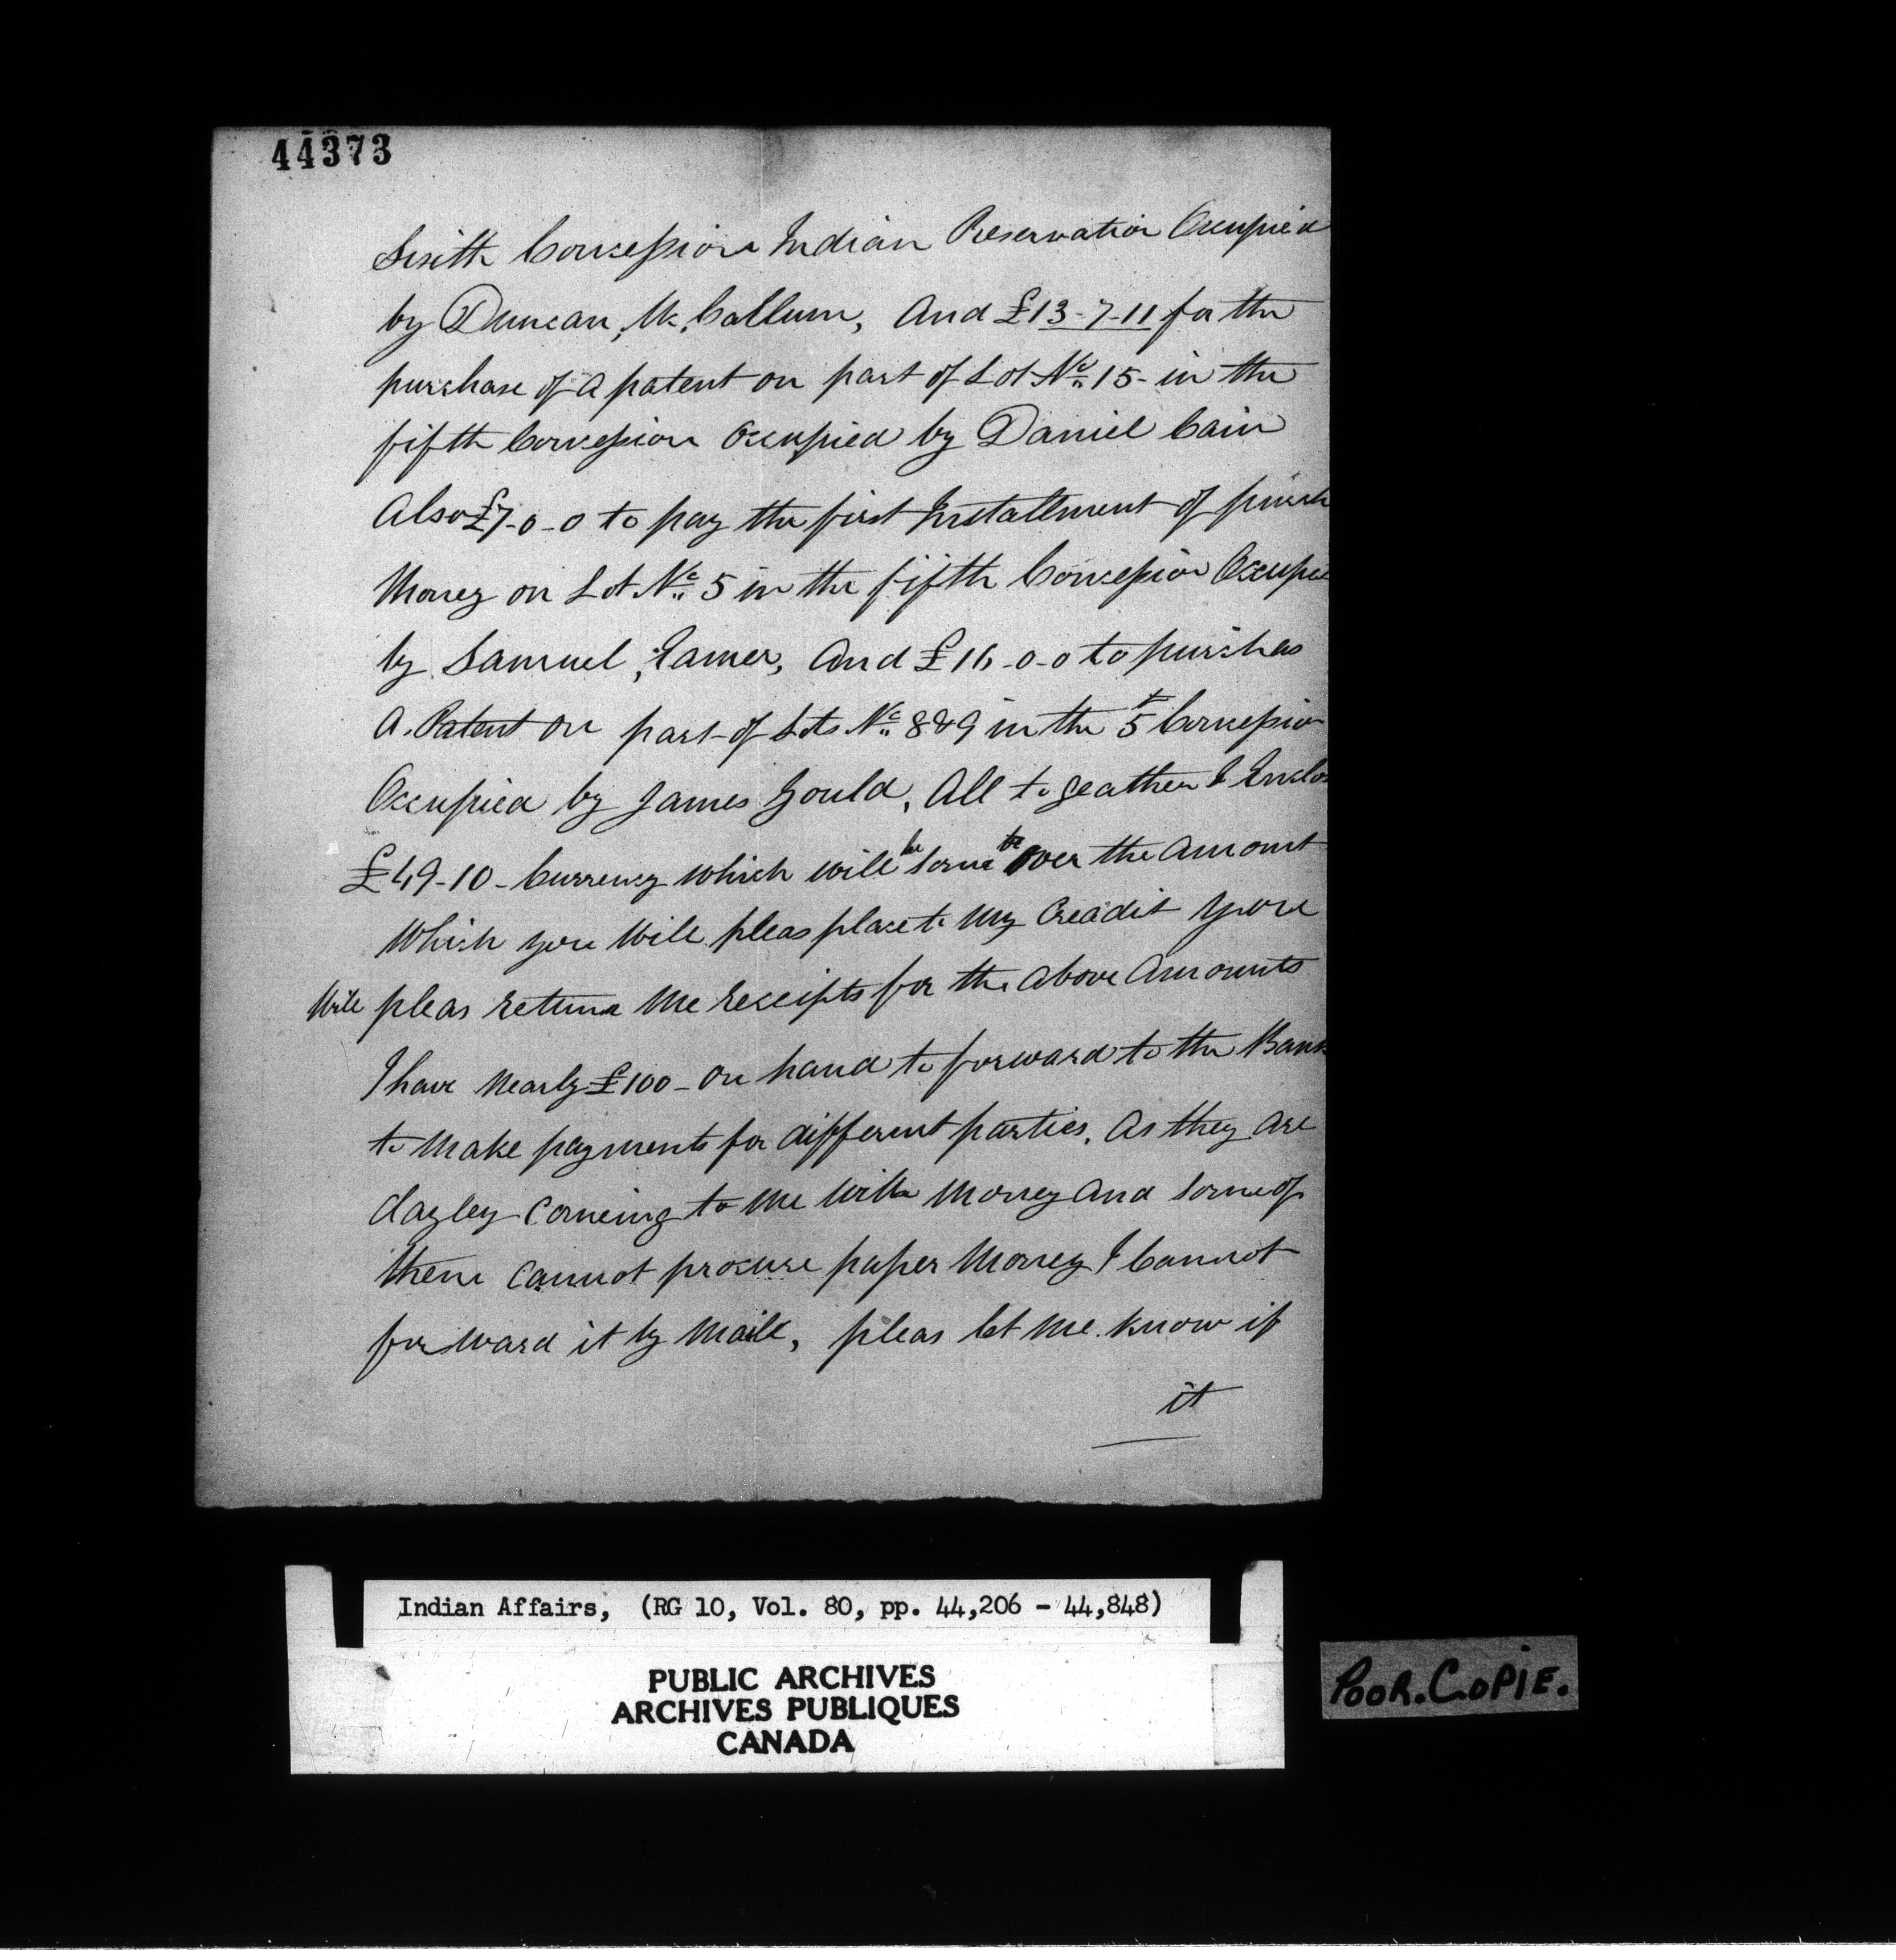 44373
Sixth Concession Indian Reservation Occupied
by Duncan, Mc,Callum, And £13-7-11 for the
purchase of a patent on part of Lot No 15- in the
fifth Concession Occupied by Daniel Cain
Also £7-0-0 to pay the first Installment of purch
Money on Lot No 5 in the fifth Concession Occupie
by Samuel, And £16-0-0 to purchas
A. Patent on part of Lots No 8&9 in the 5 Concession
Occupied by James Gould, All to geather I Inclos
£49-10- Currency which will be some over the Amount
Which you Will pleas place to My Creadit you
Will pleas return Me receipts for the above Amounts
I have Nearly £100- on hand to forward to the Bank
to Make payments for different parties. As they are
dayley Comeing to Me With Money And some of
them Cannot procure paper Money I Cannot
forward it by Maile, pleas let Me know if
it
Indian Affairs, (RG 10, Vol. 80, pp. 44,206 - 44,848)
PUBLIC ARCHIVES
ARCHIVES PUBLIQUES
CANADA
POOR.COPIE.